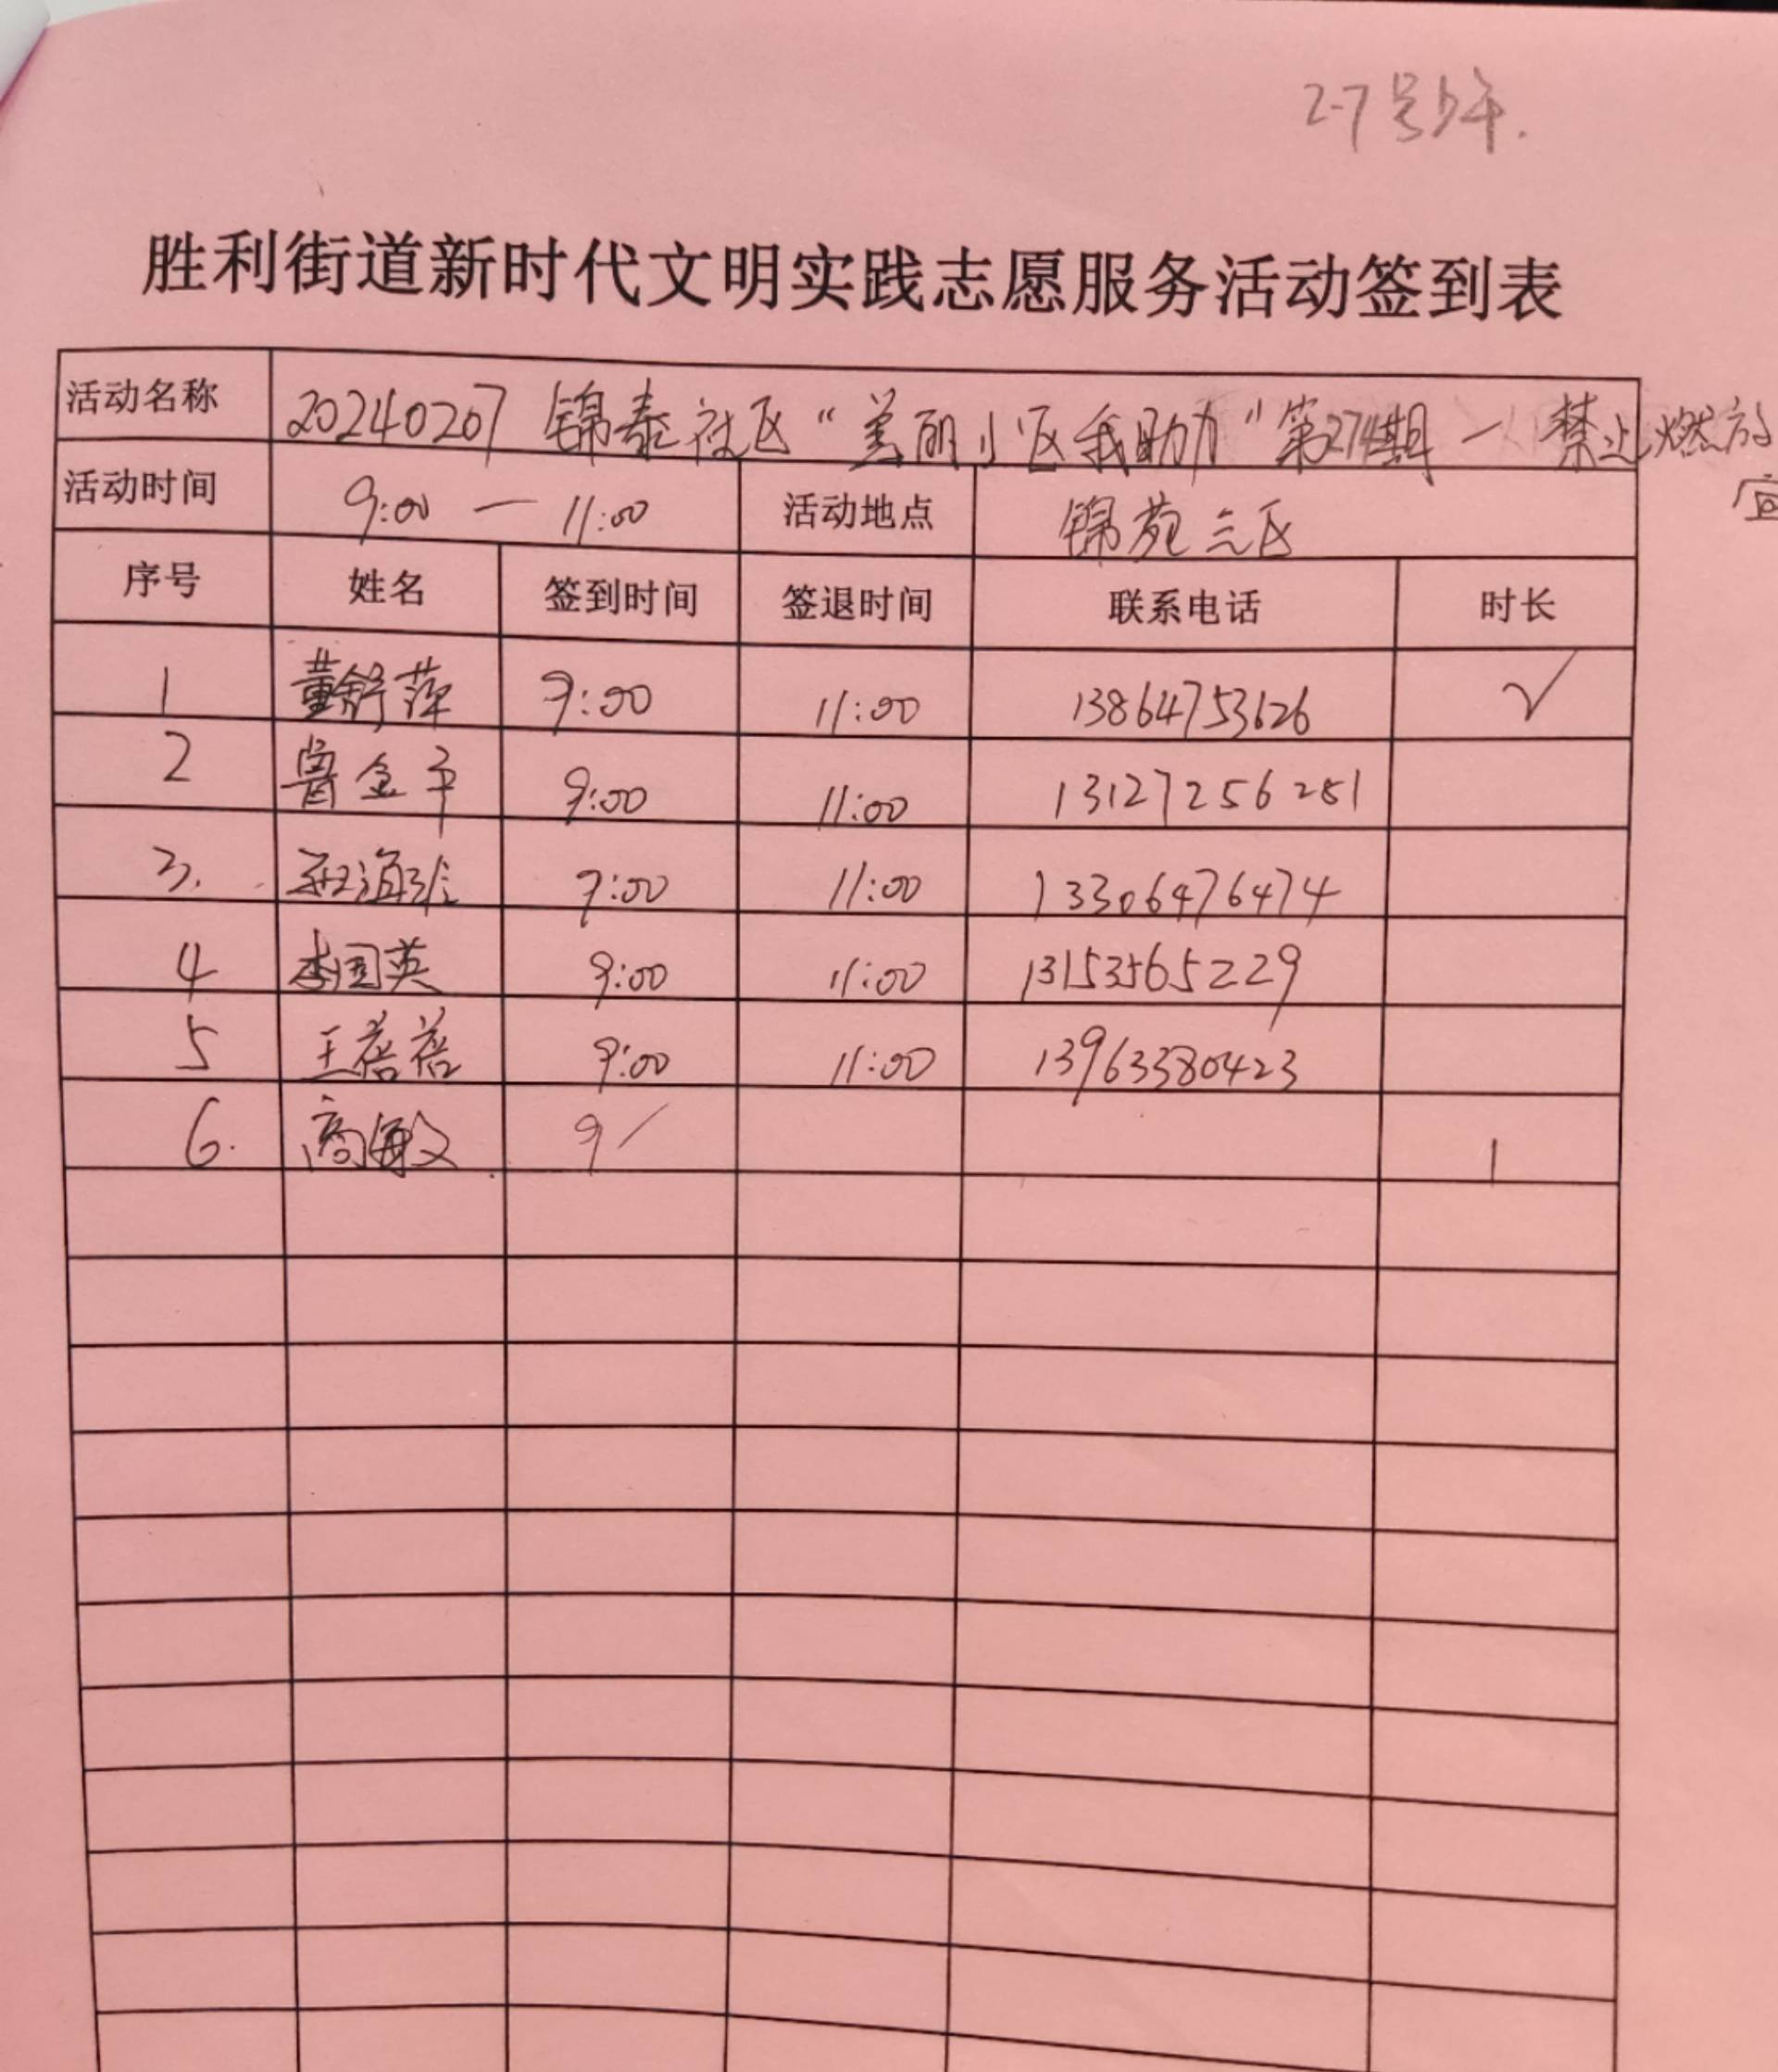 2-7号上午.
胜利街道新时代文明实践志愿服务活动签到表
活动名称 20240207 锦泰社区“美丽小区我助力”第274期一禁止燃放
宣
活动时间 9:00 — 11:00 活动地点 锦苑三区
序号 姓名 签到时间 签退时间 联系电话 时长
1 董舒萍 9:00 11:00 13864753626 √
2 鲁金平 9:00 11:00 13127256251
3. 9:00 11:00 13306476474
4 李国英 9:00 11:00 13153565229
5 王蓓蓓 9:00 11:00 13963380423
6. 商敏 9 1